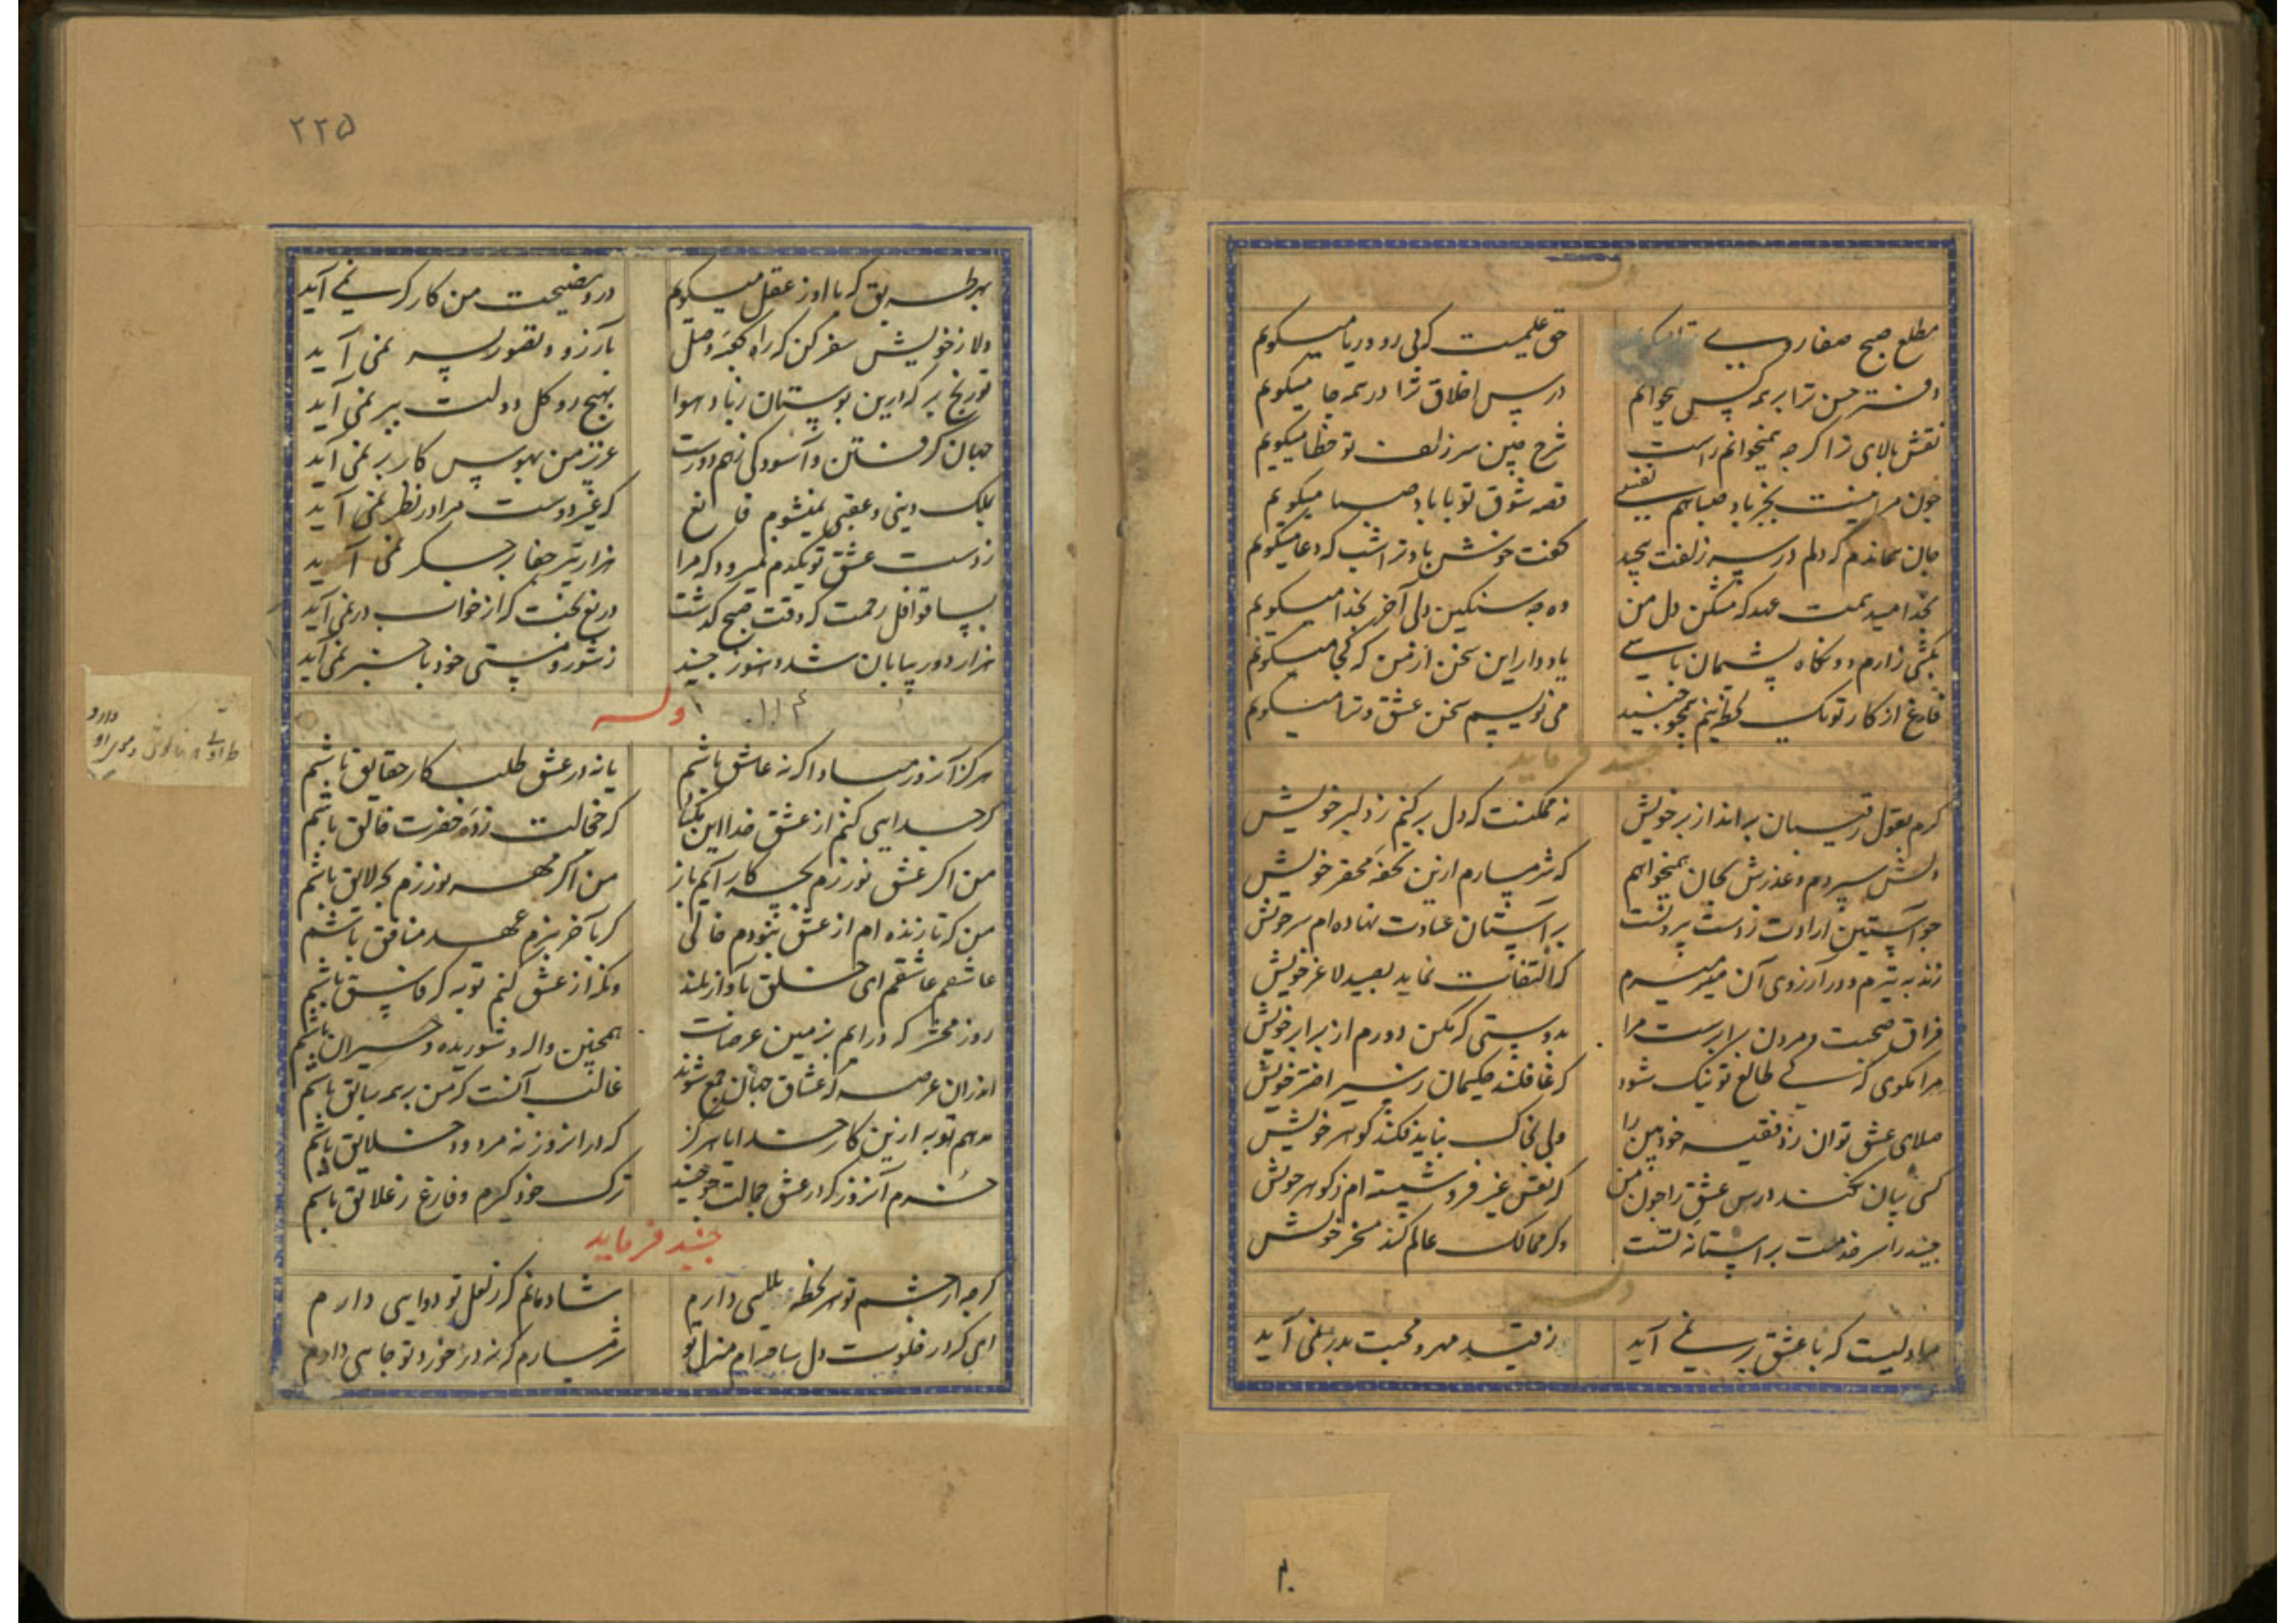 وله
مطلع صبح صفا روی
حق علیمست که بی رو و ریا میکویم
دفتر حسن ترا بر همه کس میخوانم
درس اخلاق ترا در همه جا میکویم
نقش بالای ترا کرچه نمیخوانم راست
شرح چین سر زلف تو خطا میکویم
چون مرا نیست بجز باد صبا هم نفسی
قصه شوق تو با باد صبا میکویم
جان نماندم که دلم در سر زلفت پیچید
کفت خوش باد ترا شب که دعا میکویم
بخدا میدهمت عهد که مشکن دل من
وه چه سنکین دلی آخر بخدا میکویم
بکشی زارم و ونکاه پشیمان باشی
یاد دار این سخن از من که کجا میکویم
فارغ از کار تو یک لحظه نیم همچو جنید
می نویسم سخن عشق و ترا میکویم
جنید فرماید
کرم بقول رقیبان براند از بر خویش
نه ممکنست که دل برکنم ز دلبر خویش
دلش سپردم و عذرش بجان همیخواهم
که شرمسارم ازین تحفه محقر خویش
چو آستین ارادت ز دست برنشت
بر آستان عبادت نهاده ام سر خویش
زند به تیرم و در آرزوی آن میمیرم
که التفات نماید بصید لاغر خویش
فراق صحبت و مردن برابرست مرا
بدوستی که مکن دورم از برابر خویش
مرا مکوی که کی طالع تو نیک شود
که غافلند حکیمان ز سیر اختر خویش
صلای عشق توان زد فقیه خودبین را
ولی بخاک نباید فکند کوهر خویش
کسی بیان نکند درس عشق را چون من
که نقش غیر فرو شسته ام ز کوهر خویش
جنید را سر خدمت بر آستانه تست
وکر ممالک عالم کند مسخر خویش
وله
جهادلیست که با عشق بر نمی آید
ز قید مهر و محبت بدر نمی آید
۲۲۵
بهر طریق که با او ز عقل میکویم
درو نصیحت من کارکر نمی آید
دلا ز خویش سفر کن که راه کعبه وصل
بآرزو و تصور بسر نمی آید
تو رنج بر که درین بوستان ز باد هوا
بهیچ رو کل دولت ببر نمی آید
جهان کرفتن و آسودکی ز هم دورست
عزیز من بهوس کار بر نمی آید
بملک دینی و عقبی نمیشوم قانع
که غیر دوست مرا در نظر نمی آید
ز دست عشق تو یکدم نمیرود که مرا
هزار تیر جفا بر جکر نمی آید
بسا قوافل رحمت که وقت صبح کذشت
دریغ بخت که از خواب در نمی آید
هزار دور بپایان شد و هنوز جنید
ز شور و مستی خود با خبر نمی آید
وله
هرکز آن روز مبادا که نه عاشق باشم
یا نه در عشق طلبکار حقایق باشم
کر جدایی کنم از عشق خدا این مکناد
که خجالت زده حضرت خالق باشم
من اکر عشق نورزم بچه کار آیم باز
من اکر مهر نورزم بچه لایق باشم
من که تا زنده ام از عشق نبودم خالی
کر بآخر ببرم عهد منافق باشم
عاشقم عاشقم ای خلق بآواز بلند
وکر از عشق کنم توبه که فاسق باشم
روز محشر که درایم بزمین عرصات
همچنین واله و شوریده و حیران باشم
اندران عرصه که عشاق جهان جمع شوند
غالب آنست که من بر همه سابق باشم
مدهم توبه ازین کار خدایا هرکز
که در آن روز نه مردود خلایق باشم
خرم آن روز که در عشق جمالت چو جنید
ترک خود کیرم و فارغ ز علایق باشم
جنید فرماید
کرچه از چشم تو هر لحظه بلایی دارم
شادمانم که ز لعل تو دوایی دارم
ای که در خلوت دل ساخته ام منزل تو
شرمسارم که نه در خورد تو جایی دارم